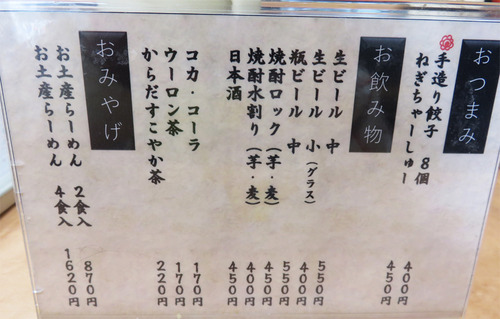 おつまみ
手造り餃子 8個 400円
ねぎちゃーしゅー 450円
お飲み物
生ビール 中 550円
生ビール 小(グラス) 400円
瓶ビール 中 550円
焼酎ロック(芋・麦) 450円
焼酎水割り(芋・麦) 400円
日本酒 450円
コカ・コーラ 170円
ウーロン茶 170円
からだすこやか茶 220円
おみやげ
お土産らーめん 2食入 870円
お土産らーめん 4食入 1620円